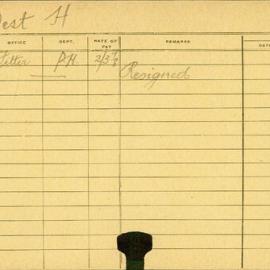 est H
OFFICE DEPT. RATE OF PAY REMARKS DAT
fitter P.H. 2/3⅞ Resigned